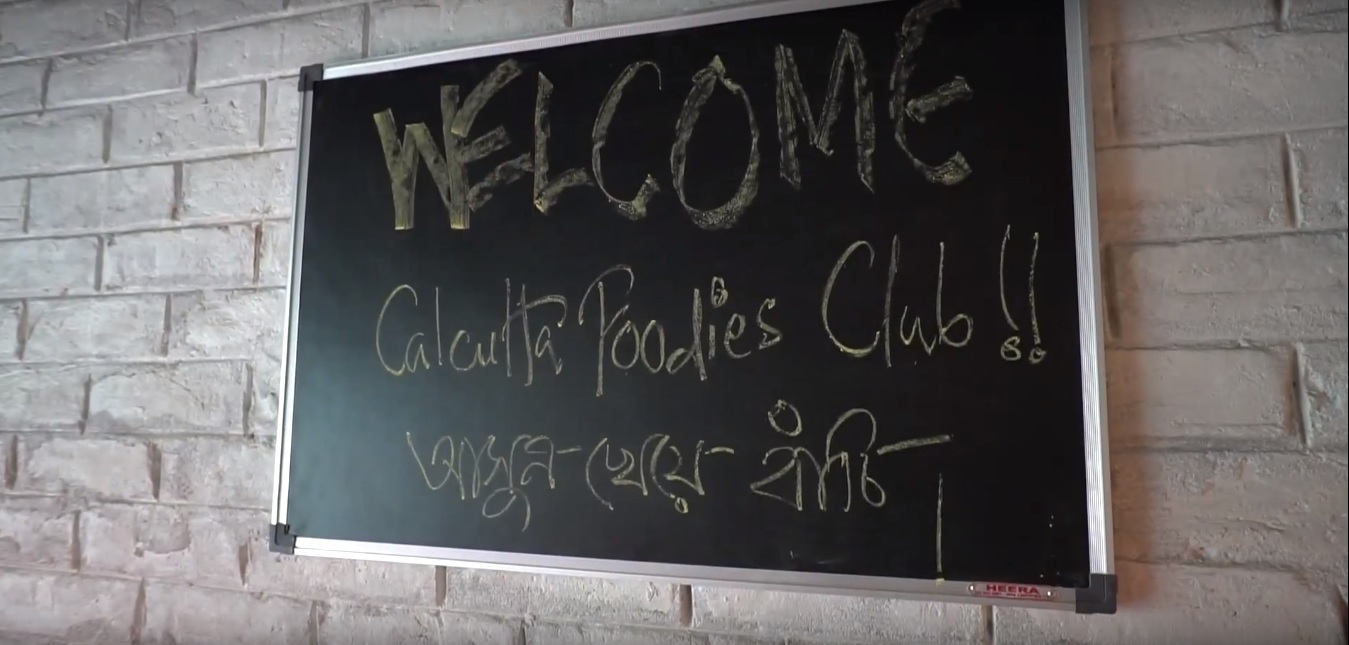 WELCOME
Calcutta Foodies Club !!
আসুন খেয়ে বাঁচি।
HEERA